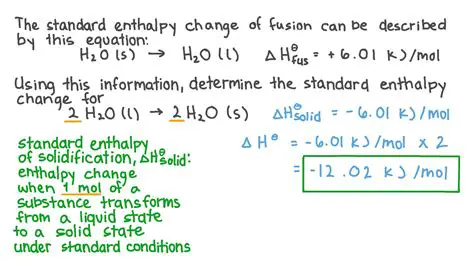 The standard enthalpy change of fusion can be described
by this equation:
H₂O (s) → H₂O (l) ΔH⦵fus = + 6.01 kJ/mol
Using this information, determine the standard enthalpy
change for
2 H₂O (l) → 2 H₂O (s) ΔH⦵solid = -6.01 kJ/mol
standard enthalpy
of solidification, ΔH⦵solid:
enthalpy change
when 1 mol of a
substance transforms
from a liquid state
to a solid state
under standard conditions
ΔH⦵ = -6.01 kJ/mol × 2
= -12.02 kJ/mol